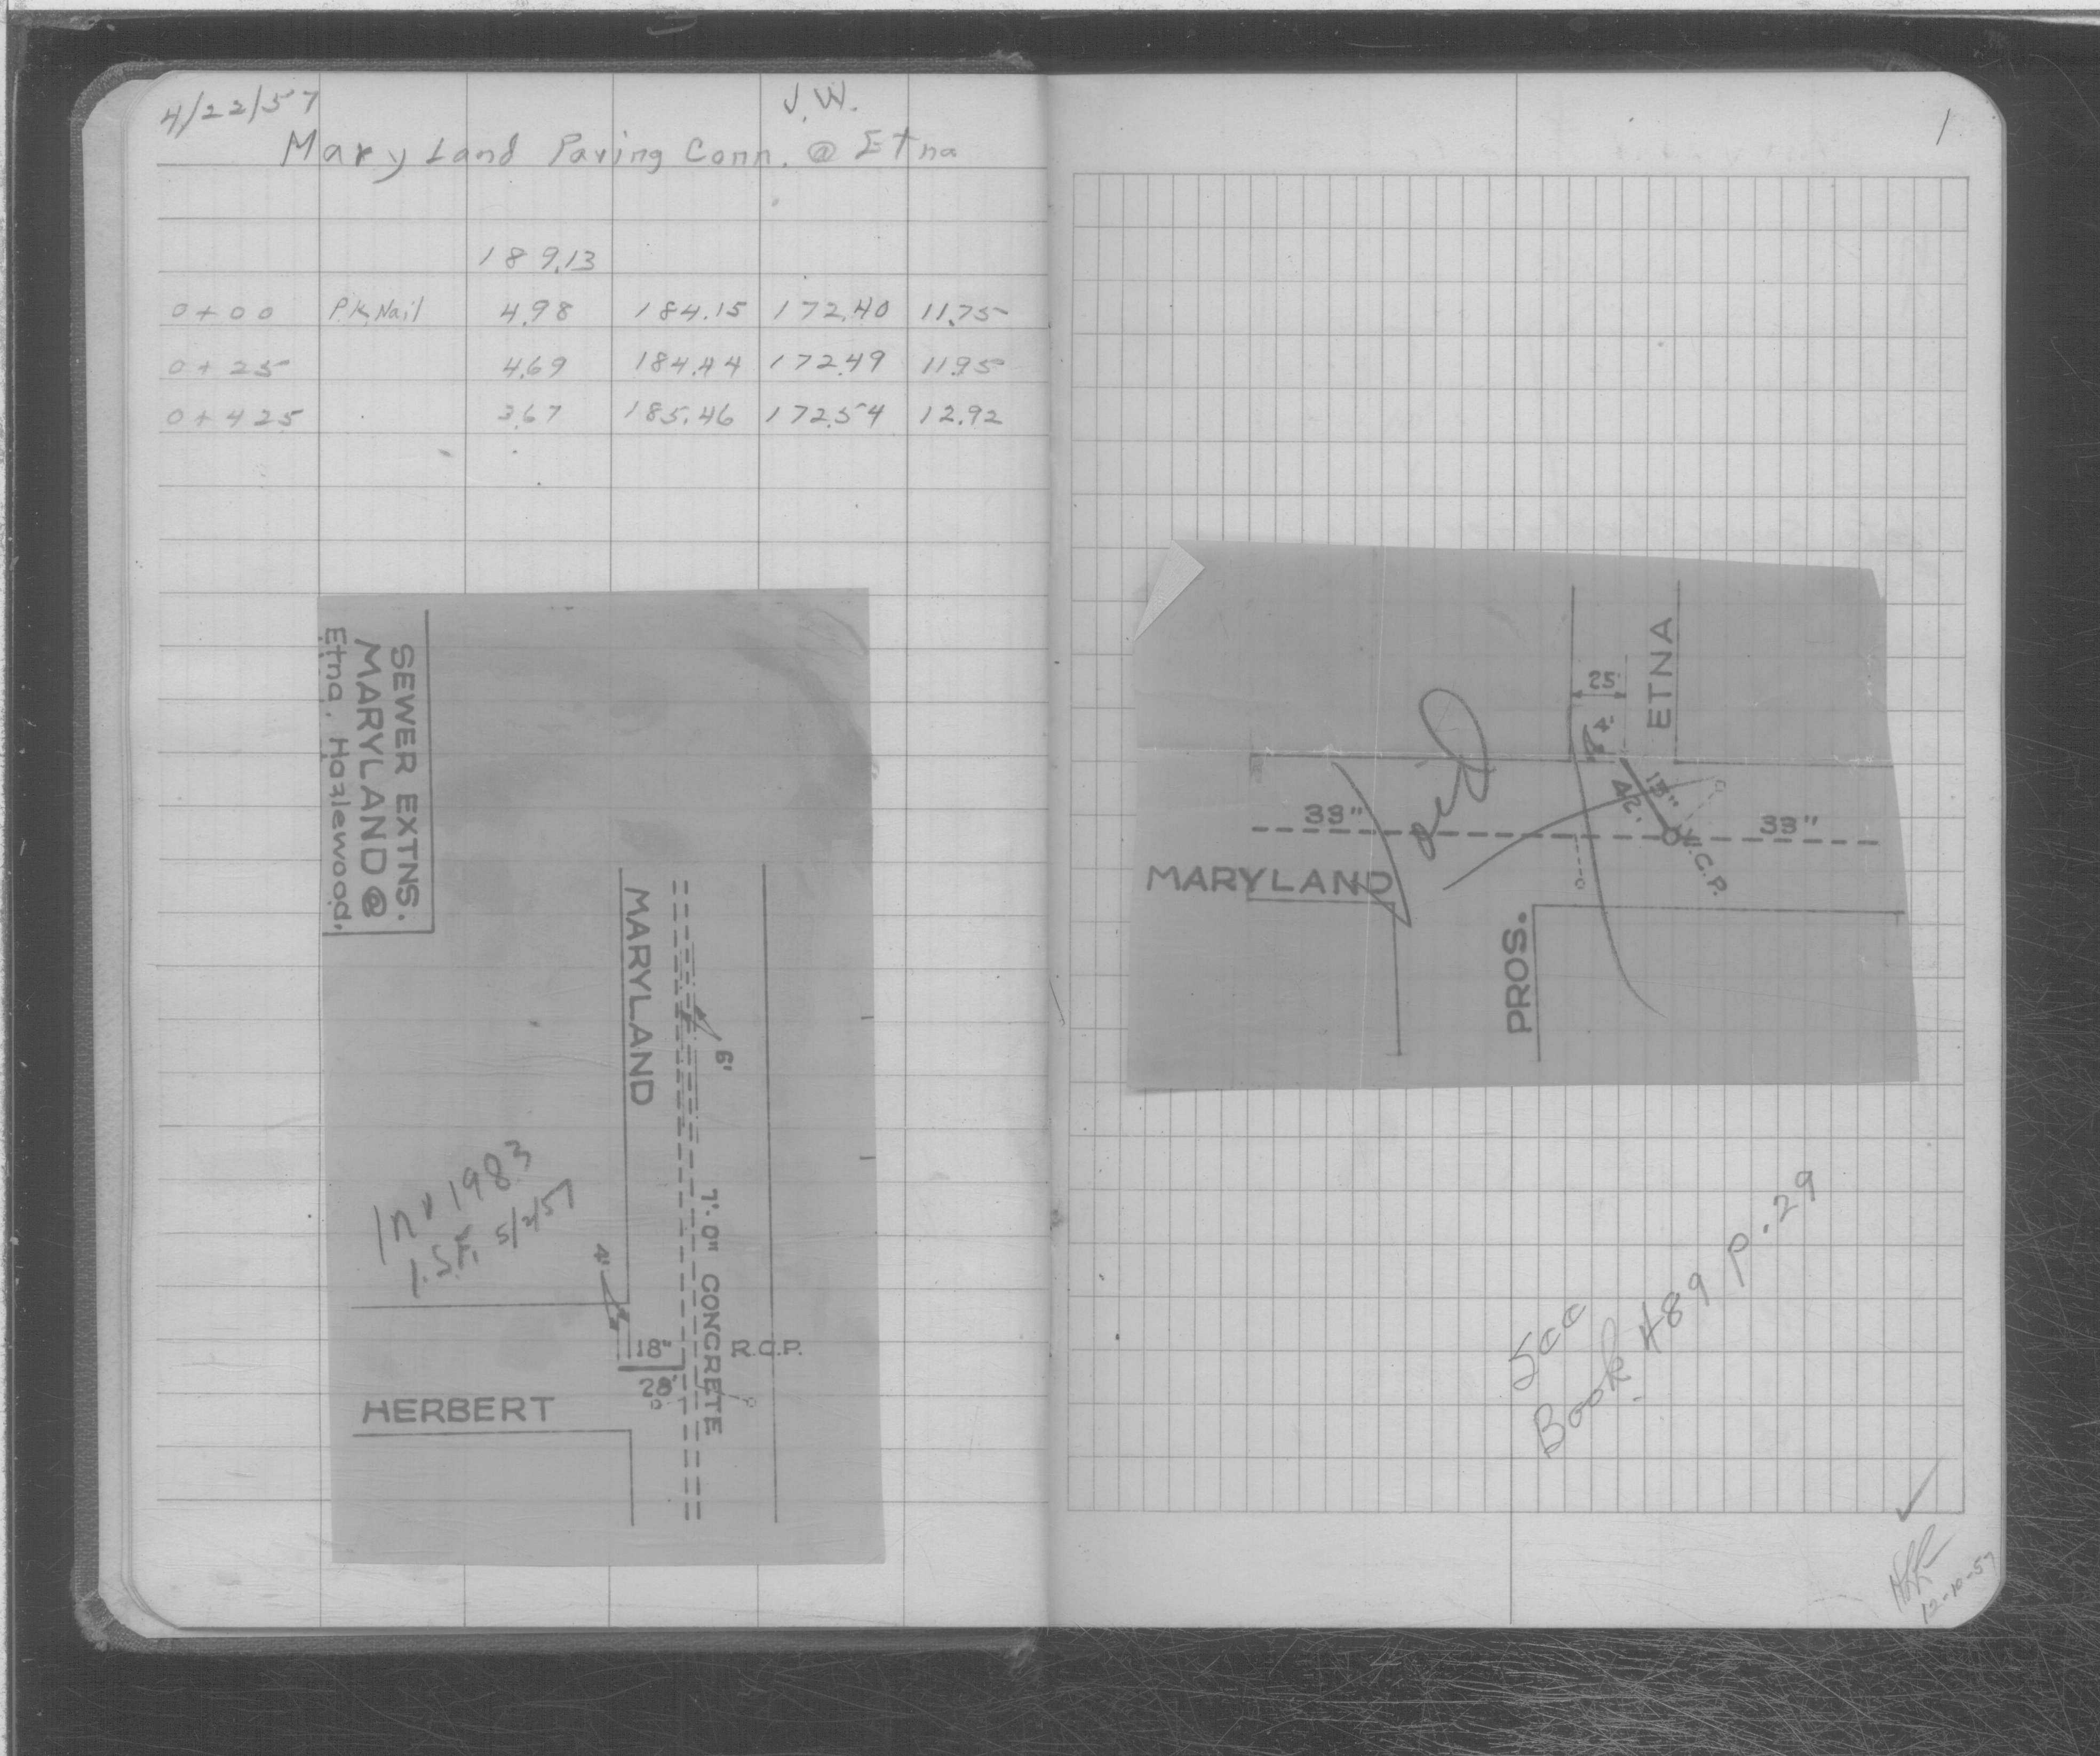 4/22/57
J.W.
Mary Land Paving Conn. @ Etna
189.13
0+00 P.K. Nail 4.98 184.15 172.40 11.75
0+25 4.69 184.44 172.49 11.95
0+425 3.67 185.46 172.54 12.92
SEWER EXTNS.
MARYLAND @
Etna, Hazlewood,
MARYLAND
6'
7'.0" CONCRETE
R.C.P.
4'
18"
28'
HERBERT
1983
5/2/57
1
ETNA
25
4'
15"
42'
33"
33"
V.C.P.
MARYLAND
PROS.
Book 489 P. 29
12-10-57